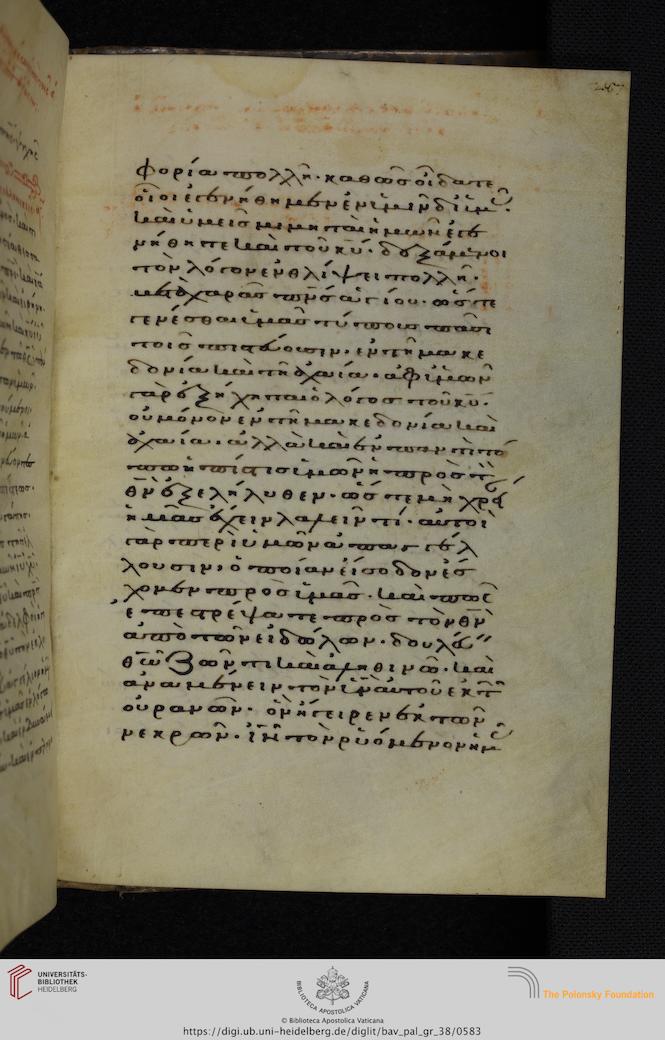 267
φορία πολλῆ· καθὼς οἴδατε
οἷοι ἐγενήθημεν ἐν ὑμῖν δι ὑμ
καὶ ὑμεῖς μιμηταὶ ἡμῶν ἐγε
νήθητε καὶ τοῦ κυ· δεξάμενοι
τὸν λόγον ἐν θλίψει πολλῆ·
μετὰ χαρᾶς πνς ἁγίου· ὥστε
γενέσθαι ἡμᾶς τύπους πᾶσι
τοῖς πιστεύουσιν· ἐν τῆ μακε
δονία καὶ τῆ ἀχαία· ἀφ ἡμῶν
γὰρ ἐξήχηται ὁ λόγος τοῦ κυ·
οὐ μόνον ἐν τῆ μακεδονία καὶ
ἀχαία· ἀλλὰ καὶ ἐν παντὶ τό
πω ἡ πίστις ἡμῶν ἡ πρὸς τὸν
θν ἐξελήλυθεν· ὥστε μὴ χρεί
ἡμᾶς ἔχειν λαλεῖν τί· αὐτοὶ
γὰρ περὶ ὑμῶν ἀπαγγέλ
λουσιν, ὁποίαν εἴσοδον ἔσ
χομεν πρὸς ὑμᾶς· καὶ πῶς
ἐπεστρέψατε πρὸς τὸν θν
ἀπὸ τῶν εἰδώλων· δουλεύ
θω ζῶντι καὶ ἀληθινῶ· καὶ
ἀναμένειν τὸν υν αὐτοῦ ἐκ τῶν
οὐρανῶν· ὃν ἤγειρεν ἐκ τῶν
νεκρῶν· ιν τὸν ῥυόμενον ἡμ
UNIVERSITÄTS-
BIBLIOTHEK
HEIDELBERG
BIBLIOTECA APOSTOLICA VATICANA
The Polonsky Foundation
© Biblioteca Apostolica Vaticana
https://digi.ub.uni-heidelberg.de/diglit/bav_pal_gr_38/0583